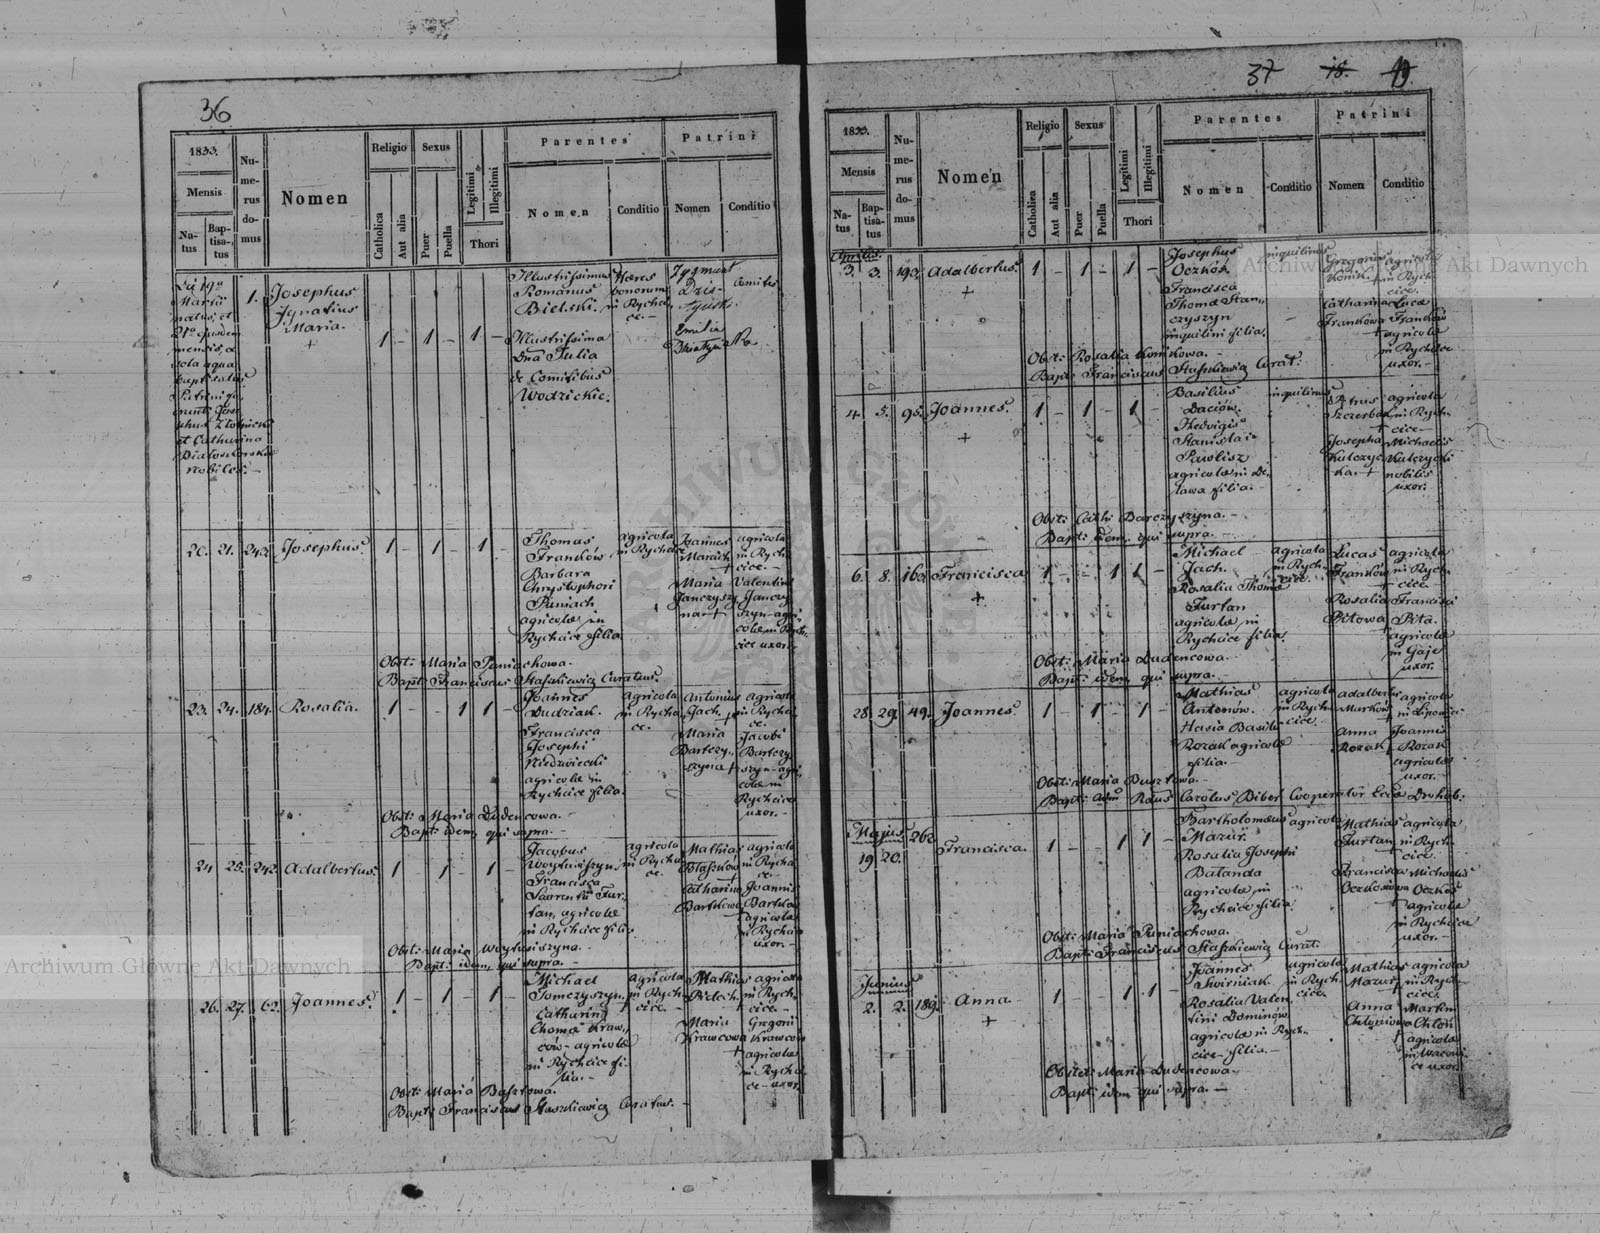 36
1833.
Mensis
Na-
tus
Bap-
tisa-
tus
Nu-
me-
rus
do-
mus
Nomen
Religio
Catholica
Aut alia
Sexus
Puer
Puella
Legitimi
Illegitimi
Thori
Parentes
Nomen
Conditio
Patrini
Nomen
Conditio
Die 19a
Martii
natus, et
21a ejusdem
mensis, a
sola aqua
baptisatus
et Catharina
nobiles.
1.
Josephus
Ignatius
Maria.
+
1 - 1 - 1 -
Illustrissimus
Romanus
Bielski.
Haeres
bonorum
in Rychci-
ce.
Illustrissima
Dna Julia
de Comitibus
Wodzickie.
Zygmunt
Comites
Emilia
20. 21. 242.
Josephus.
1 - 1 - 1 -
Thomas
Franków
Barbara
Chrystophori
Puniach
agricolae in
Rychcice filia.
agricola
in Rychcice
Joannes
agricola
in Rych-
cice.
Maria
Janczyszy-
na +
Valentini
Janczy-
szyn agri-
colae in Rych-
cice uxor.
Obst: Maria Puniachowa.
Bapt: Franciscus Staszkiewicz Curatus.
23. 24. 184.
Rosalia.
1 - - 1 1 -
Joannes
Dudziak.
Francisca
Josephi
Niedzwiecki
agricolae in
Rychcice filia.
agricola
in Rychci-
ce.
Antonius
Jach. +
agricola
in Rychci-
ce.
Maria
Bartczy-
szyna +
Jacobi
Bartczy-
szyn agri-
colae in
Rychcice
uxor.
Obst: Maria Dudencowa.
Bapt: idem, qui supra.
24 25. 242.
Adalbertus.
1 - 1 - 1 -
Jacobus
Woytusiszyn.
Francisca
Laurentii Fur-
tan, agricolae
in Rychcice filia.
agricola
in Rychci-
ce.
Mathias
agricola
in Rychci-
ce.
Catharina
Bartkowa
Joannis
Bartków
agricolae
in Rychcice
uxor.
Obst: Maria Woytusiszyna.
Bapt: idem, qui supra.
26. 27. 62.
Joannes.
1 - 1 - 1 -
Michael
Tomczyszyn.
Catharina
Thomae Kraw-
ców agricolae
in Rychcice fi-
lia.
agricola
in Rych-
cice.
Mathias
agricola
in Rych-
cice.
Maria
Krawcowa
+
Gregorii
Krawców
agricolae
in Rychci-
ce uxor.
Obst: Maria Basztowa.
Bapt: Franciscus Staszkiewicz Curatus.
37 18. 19.
1833.
Mensis
Na-
tus
Bap-
tisa-
tus
Nu-
me-
rus
do-
mus
Nomen
Religio
Catholica
Aut alia
Sexus
Puer
Puella
Legitimi
Illegitimi
Thori
Parentes
Nomen
Conditio
Patrini
Nomen
Conditio
Aprilis.
3. 3. 190.
Adalbertus.
+
1 - 1 - 1 -
Josephus
Oczkoś.
Francisca
Thomae Stan-
czyszyn
inquilini filia.
inquilinus
Gregorius
Konik.
agricola
in Rych-
cice.
Catharina
Frankowa
+
Lucae
Franków
agricolae
in Rychcice
uxor.
Obst: Rosalia Konikowa.
Bapt: Franciscus Staszkiewicz Curat:
4. 5. 95.
Joannes.
+
1 - 1 - 1 -
Basilius
Daciów.
Hedvigis
Stanislai
Pawlisz
agricolae in De-
rawa filia.
inquilinus
Petrus
Szczerba
+
agricola
in Rych-
cice.
Josepha
Kulczyc-
ka. +
Michaelis
Kulczycki
nobilis
uxor.
Obst: Cath: Barczyszyna.
Bapt: idem, qui supra.
6. 8. 160.
Francisca
+
1 - - 1 1 -
Michael
Jach.
Rosalia Thomae
Furtan
agricolae in
Rychcice filia.
agricola
in Rych-
cice.
Lucas
Franków
agricola
in Rych-
cice.
Rosalia
Pitowa
+
Francisci
Pita.
agricolae
in Gaje
uxor.
Obst: Maria Dudencowa.
Bapt: idem, qui supra.
28. 29. 49.
Joannes.
1 - 1 - 1 -
Mathias
Antonów.
Hasia Basilii
Kozak agricolae
filia.
agricola
in Rych-
cice.
Adalbertus
Marków
+
agricola
Anna
Kozak
Joannis
Kozak
agricolae
uxor.
Obst: Maria Busztowa.
Bapt: Adm Rdus Carolus Biber Cooperator Ecce Drohob:
Majus
19 20. 262
Francisca.
1 - - 1 1 -
Bartholomaeus
Mazur.
Rosalia Josephi
Balanda
agricolae in
Rychcice filia.
agricola
Mathias
Furtan
+
agricola
in Rych-
cice.
Francisca
Oczkosiowa
+
Michaelis
Oczkoś
agricolae
in Rychcice
uxor.
Obst: Maria Puniachowa.
Bapt: Franciscus Staszkiewicz Curat.
Junius
2. 2. 189.
Anna
+
1 - - 1 1 -
Joannes
Swirniak.
Rosalia Valen-
tini Dominów
agricolae in Rych-
cice filia.
agricola
in Rych-
cice.
Mathias
Mazur
+
agricola
in Rych-
cice.
Anna
Martini
Chłoń
agricolae
uxor.
Obstet: Maria Dudencowa.
Bapt: idem qui supra.
Archiwum Główne Akt Dawnych
Archiwum Główne Akt Dawnych